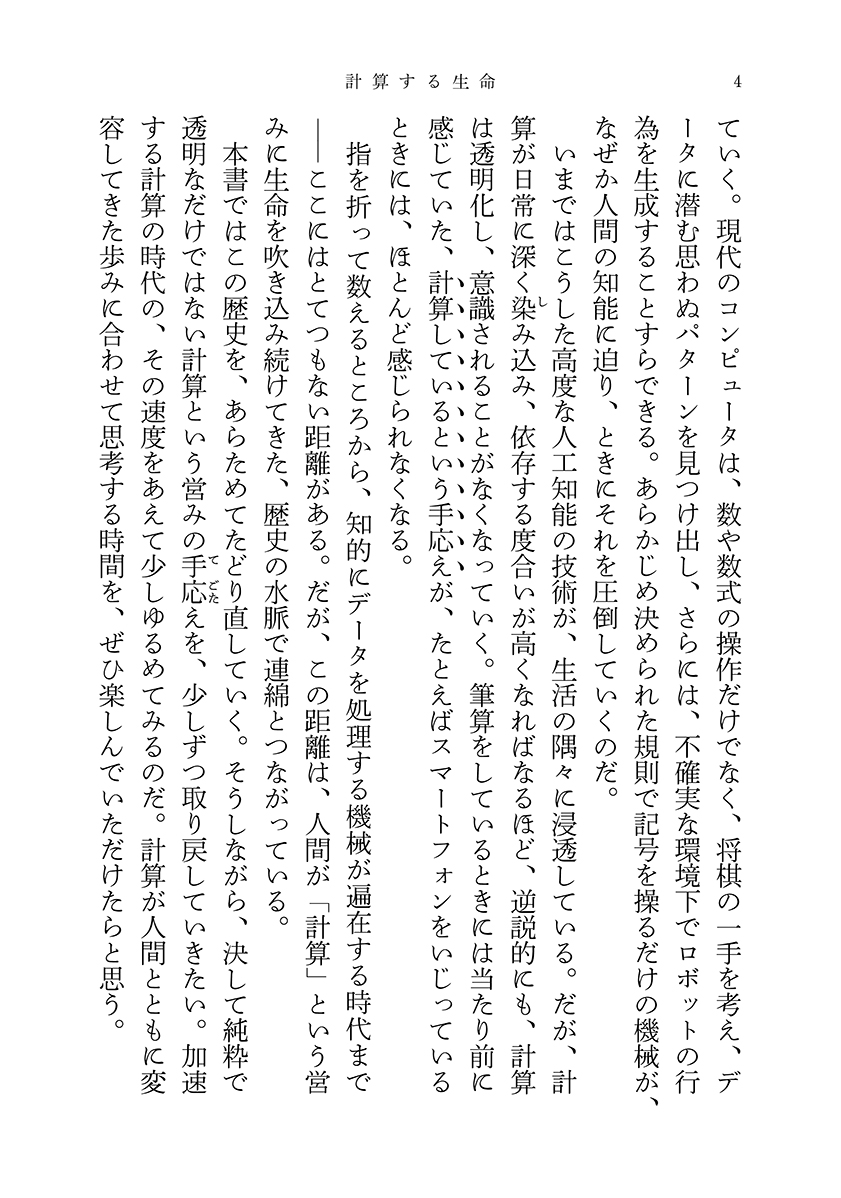 計算する生命
4
ていく。現代のコンピュータは、数や数式の操作だけでなく、将棋の一手を考え、デ
ータに潜む思わぬパターンを見つけ出し、さらには、不確実な環境下でロボットの行
為を生成することすらできる。あらかじめ決められた規則で記号を操るだけの機械が、
なぜか人間の知能に迫り、ときにそれを圧倒していくのだ。
いまではこうした高度な人工知能の技術が、生活の隅々に浸透している。だが、計
算が日常に深く染み込み、依存する度合いが高くなればなるほど、逆説的にも、計算
は透明化し、意識されることがなくなっていく。筆算をしているときには当たり前に
感じていた、計算しているという手応えが、たとえばスマートフォンをいじっている
ときには、ほとんど感じられなくなる。
指を折って数えるところから、知的にデータを処理する機械が遍在する時代まで
――ここにはとてつもない距離がある。だが、この距離は、人間が「計算」という営
みに生命を吹き込み続けてきた、歴史の水脈で連綿とつながっている。
本書ではこの歴史を、あらためてたどり直していく。そうしながら、決して純粋で
透明なだけではない計算という営みの手応えを、少しずつ取り戻していきたい。加速
する計算の時代の、その速度をあえて少しゆるめてみるのだ。計算が人間とともに変
容してきた歩みに合わせて思考する時間を、ぜひ楽しんでいただけたらと思う。